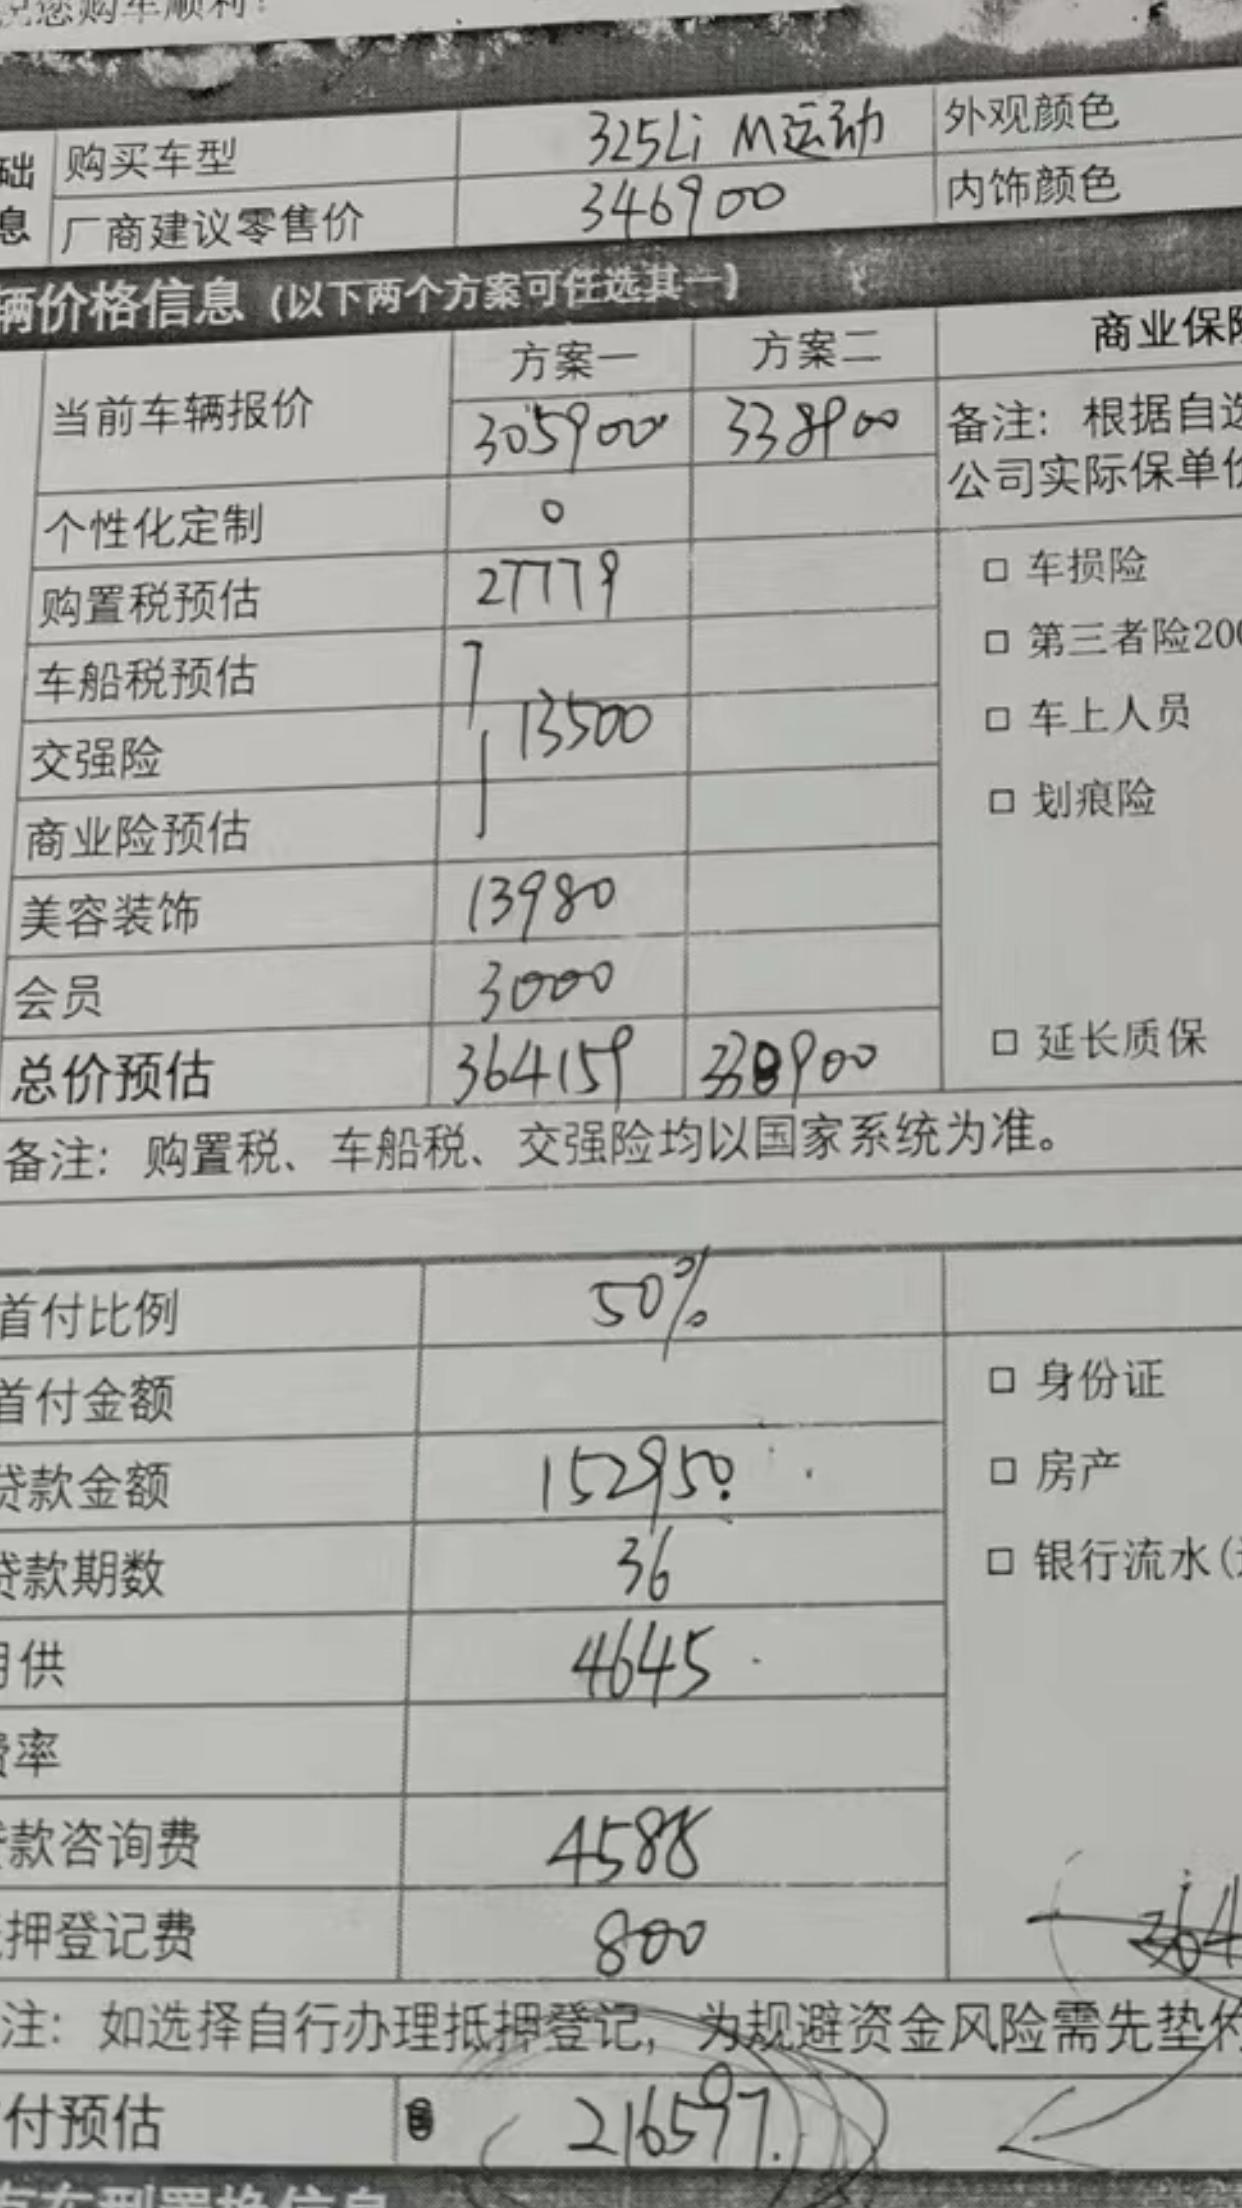 您购车顺利!
础 购买车型 325Li M运动 外观颜色
息 厂商建议零售价 346900 内饰颜色
辆价格信息 (以下两个方案可任选其一)
方案一 方案二 商业保险
当前车辆报价 305900 338900 备注: 根据自选
公司实际保单价
个性化定制 0
购置税预估 27779 □ 车损险
车船税预估 □ 第三者险200
交强险 13500 □ 车上人员
商业险预估 □ 划痕险
美容装饰 13980
会员 3000
总价预估 364159 338900 □ 延长质保
备注: 购置税、车船税、交强险均以国家系统为准。
首付比例 50%
首付金额 □ 身份证
贷款金额 152950 □ 房产
贷款期数 36 □ 银行流水(
月供 4645
费率
款咨询费 4588
押登记费 800 364
注: 如选择自行办理抵押登记, 为规避资金风险需先垫付
付预估 216597.
车型置换信息